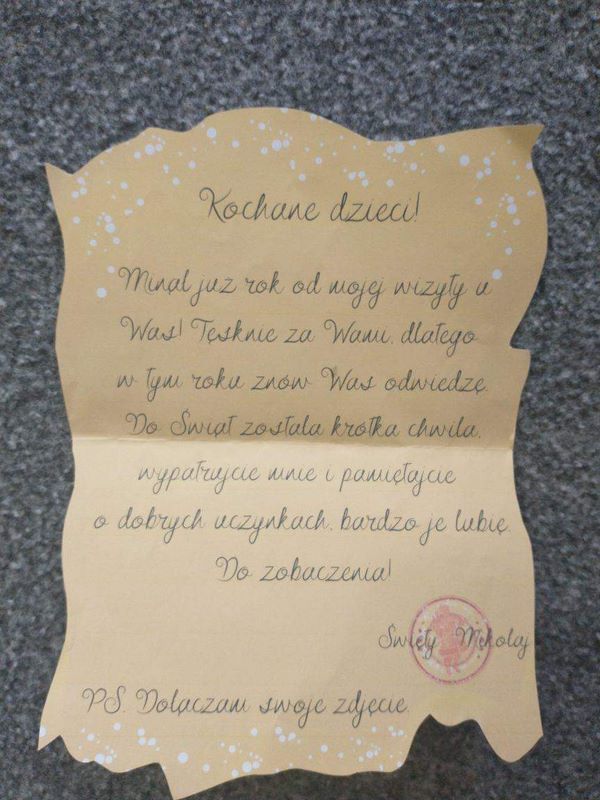 Kochane dzieci!
Minął już rok od mojej wizyty u
Was! Tęsknię za Wami, dlatego
w tym roku znów Was odwiedzę.
Do Świąt została krótka chwila,
wypatrujcie mnie i pamiętajcie
o dobrych uczynkach, bardzo je lubię.
Do zobaczenia!
Święty Mikołaj
PS. Dołączam swoje zdjęcie.